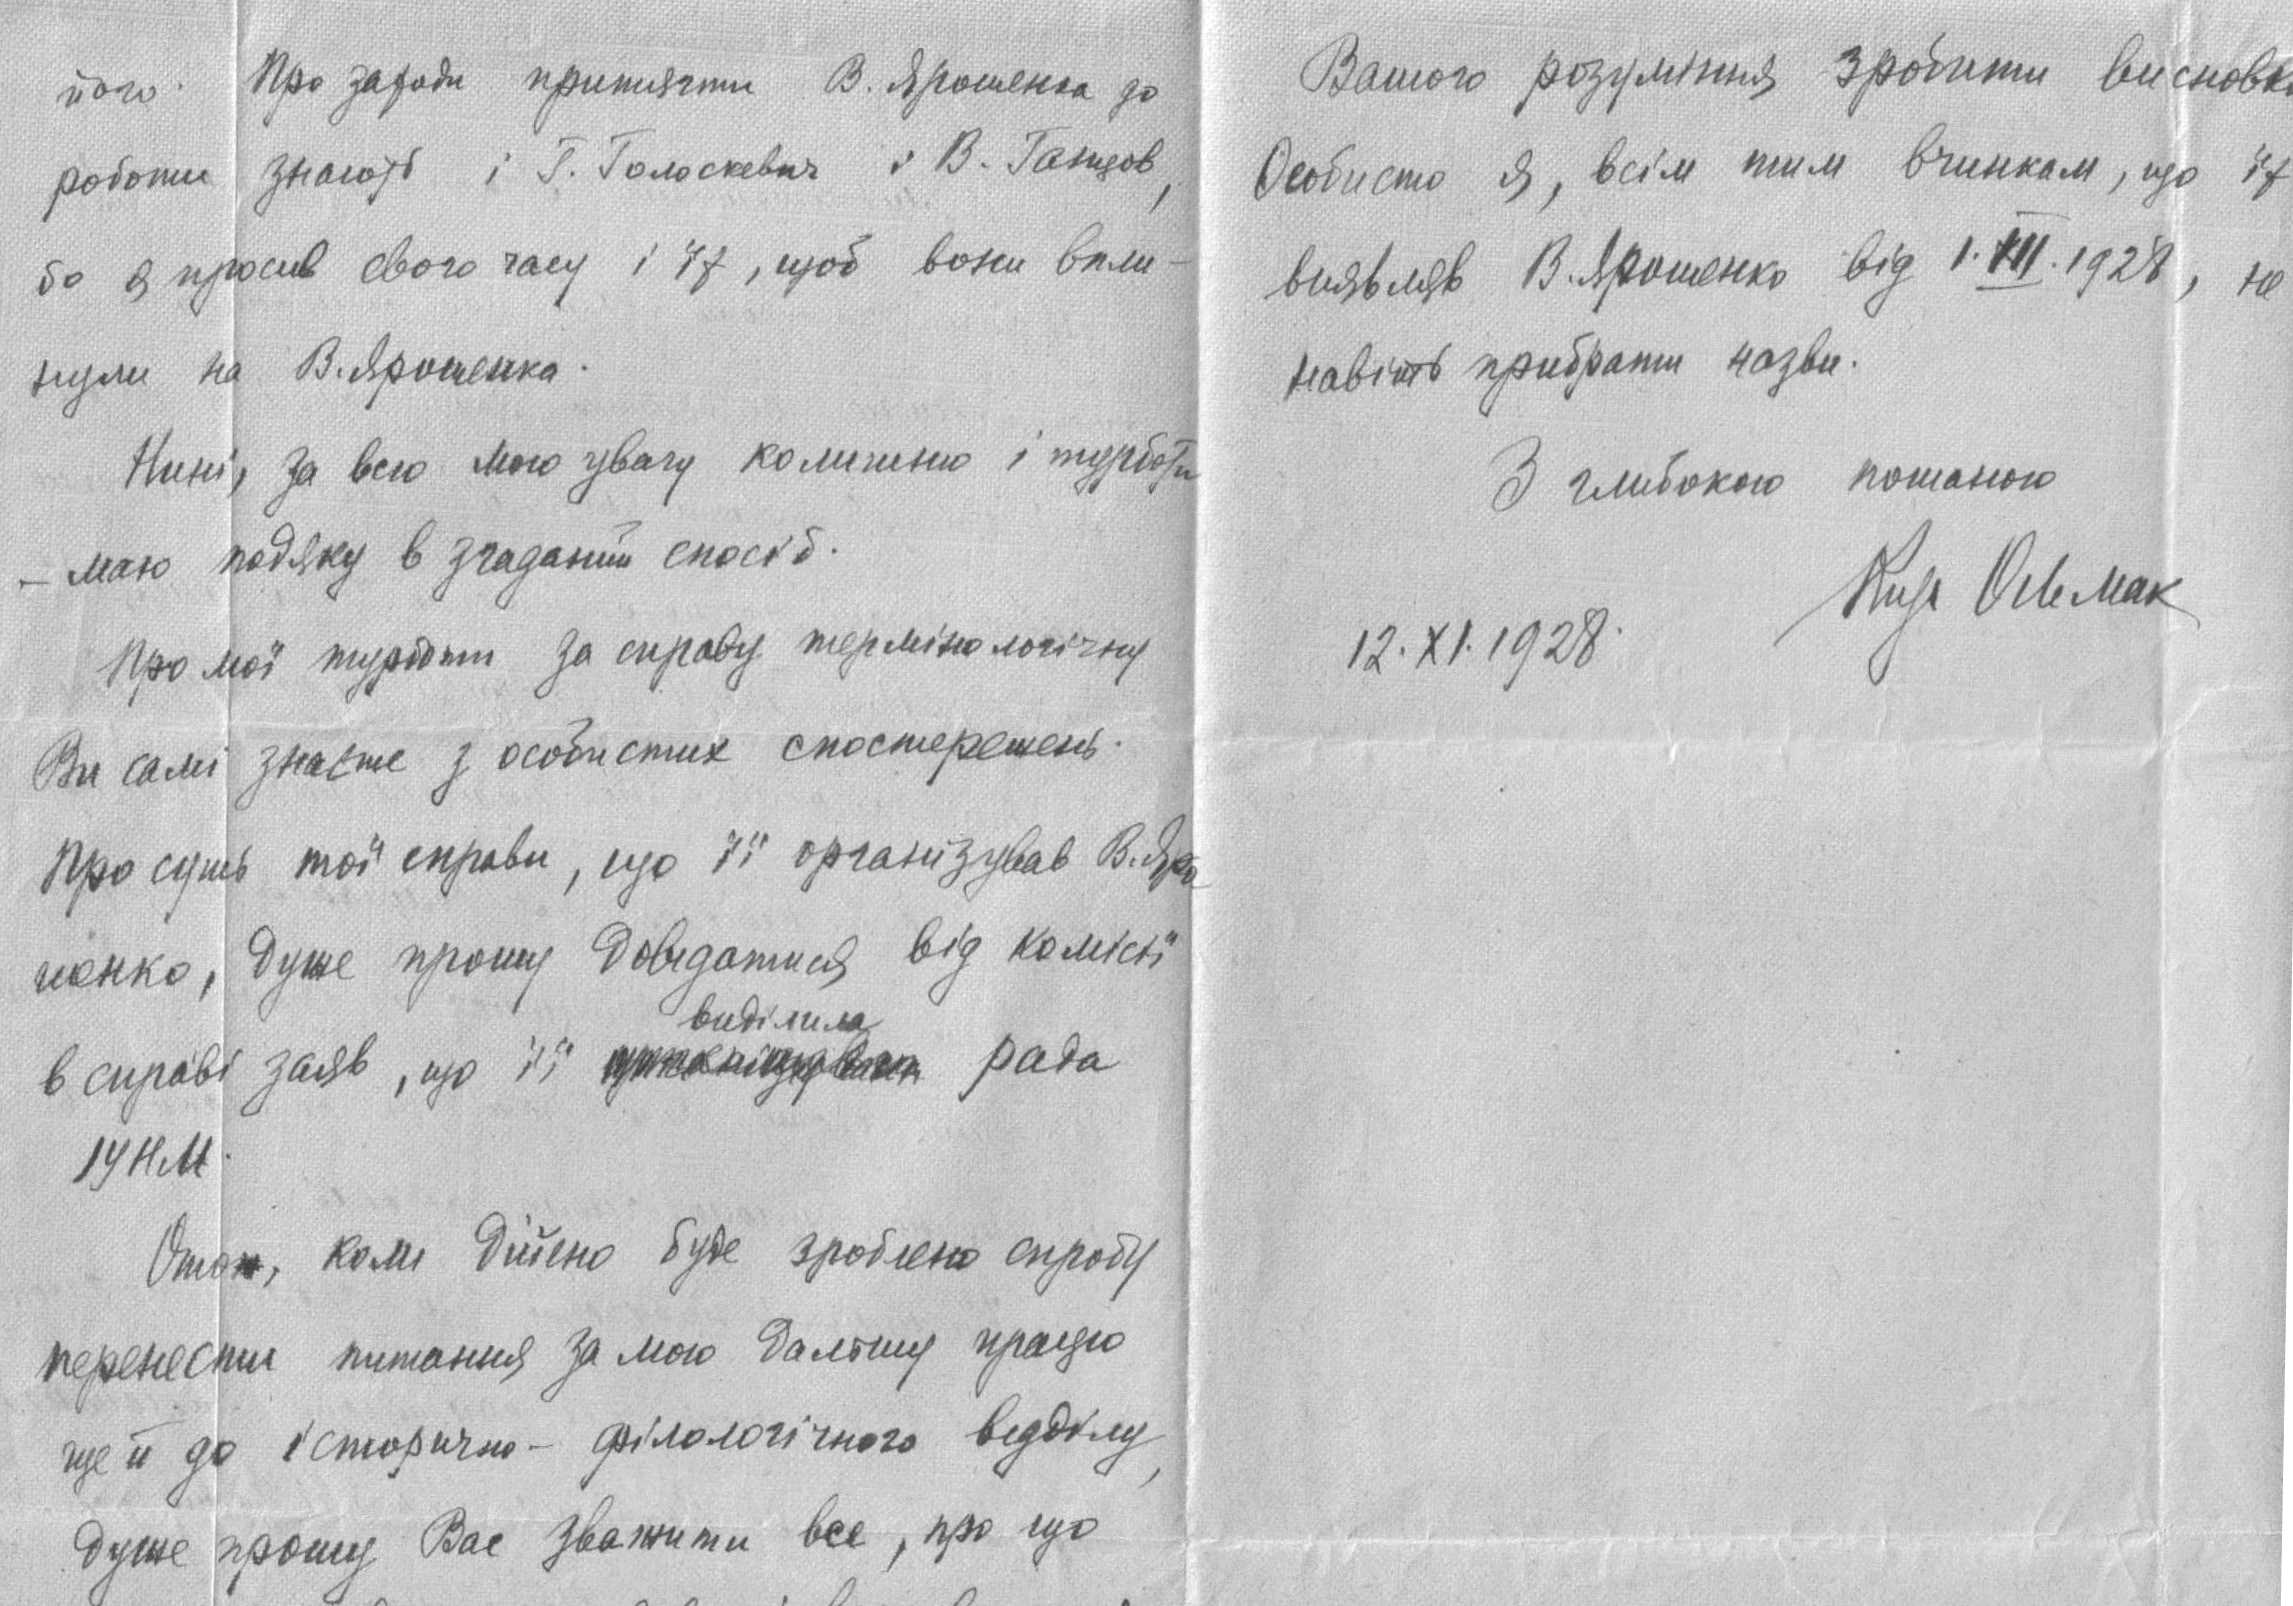 його. Про заходи притягти В. Ярошенка до
роботи знають і Г. Голоскевич і В. Ганцов,
бо я просив свого часу і їх, щоб вони впли-
нули на В. Ярошенка.
Нині, за всю мою увагу колишню і турботи
– маю подяку в згаданий спосіб.
Про мої турботи за справу термінологічну
Ви самі знаєте з особистих спостережень.
Про суть тої справи, що її організував В. Яро
шенко, дуже прошу довідатися від комісії
виділила
в справі заяв, що її рада
ІУНМ.
Отож, коли дійсно буде зроблено спробу
перенести питання за мою дальшу працю
ще й до історично-філологічного відділу,
дуже прошу Вас зважити все, про що
Вашого розуміння зробити висновки
Особисто я, всім тим вчинкам, що їх
виявляв В. Ярошенко від 1. .1928, не
навіть прибрати назви.
З глибокою пошаною
12.XI.1928.